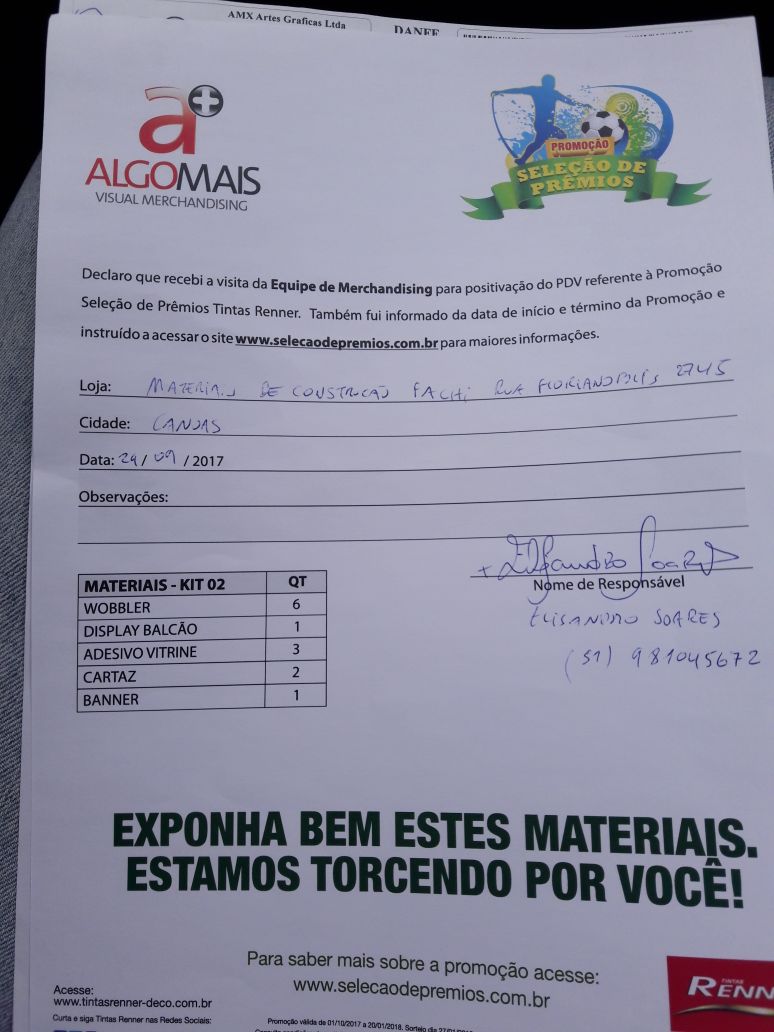 AMX Artes Graficas Ltda
DANFE
a+
ALGOMAIS
VISUAL MERCHANDISING
PROMOÇÃO
SELEÇÃO DE
PRÊMIOS
Declaro que recebi a visita da Equipe de Merchandising para positivação do PDV referente à Promoção
Seleção de Prêmios Tintas Renner. Também fui informado da data de início e término da Promoção e
instruído a acessar o site www.selecaodepremios.com.br para maiores informações.
Loja: MATERIAIS DE CONSTRUCAO FACHI RUA FLORIANOPOLIS 2745
Cidade: CANOAS
Data: 29/09/2017
Observações:
+ Elisandro Soares
Nome de Responsável
ELISANDRO SOARES
(51) 981045672
MATERIAIS - KIT 02 QT
WOBBLER 6
DISPLAY BALCÃO 1
ADESIVO VITRINE 3
CARTAZ 2
BANNER 1
EXPONHA BEM ESTES MATERIAIS.
ESTAMOS TORCENDO POR VOCÊ!
Para saber mais sobre a promoção acesse:
www.selecaodepremios.com.br
TINTAS
RENN
Acesse:
www.tintasrenner-deco.com.br
Curta e siga Tintas Renner nas Redes Sociais:
Promoção válida de 01/10/2017 a 20/01/2018. Sorteio dia 27/01